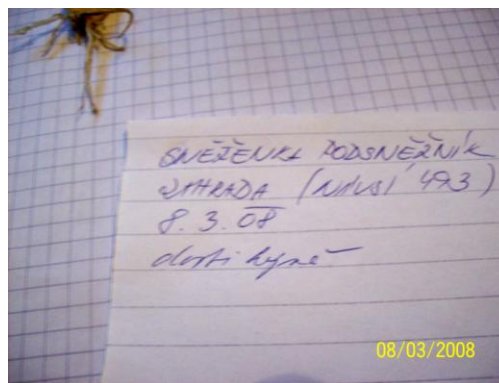 SNĚŽENKA PODSNĚŽNÍK
ZAHRADA (NÁVSÍ 493)
8. 3. 08
dosti hojně
08/03/2008